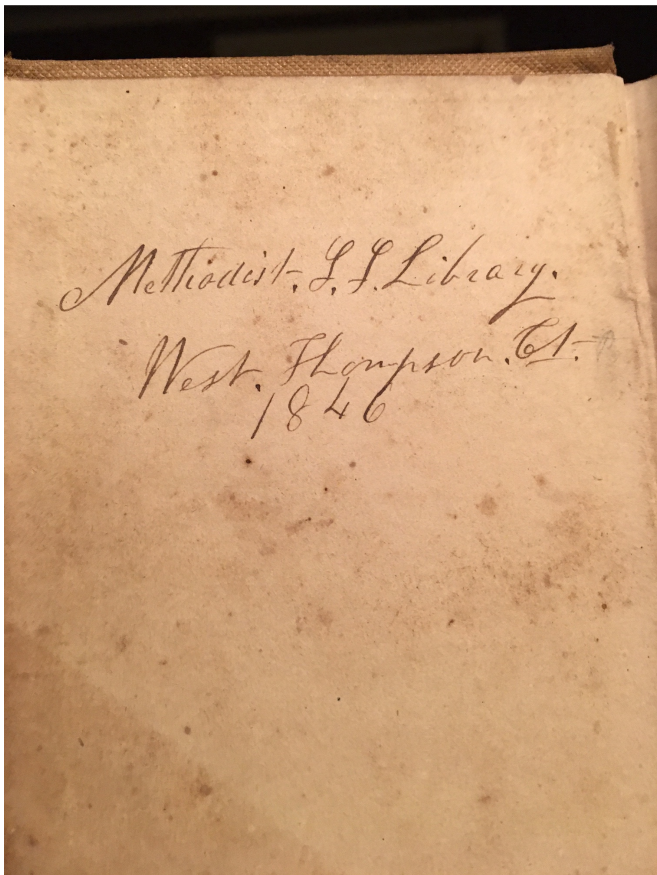 Methodist. S. S. Library.
West. Thompson. Ct.
1846